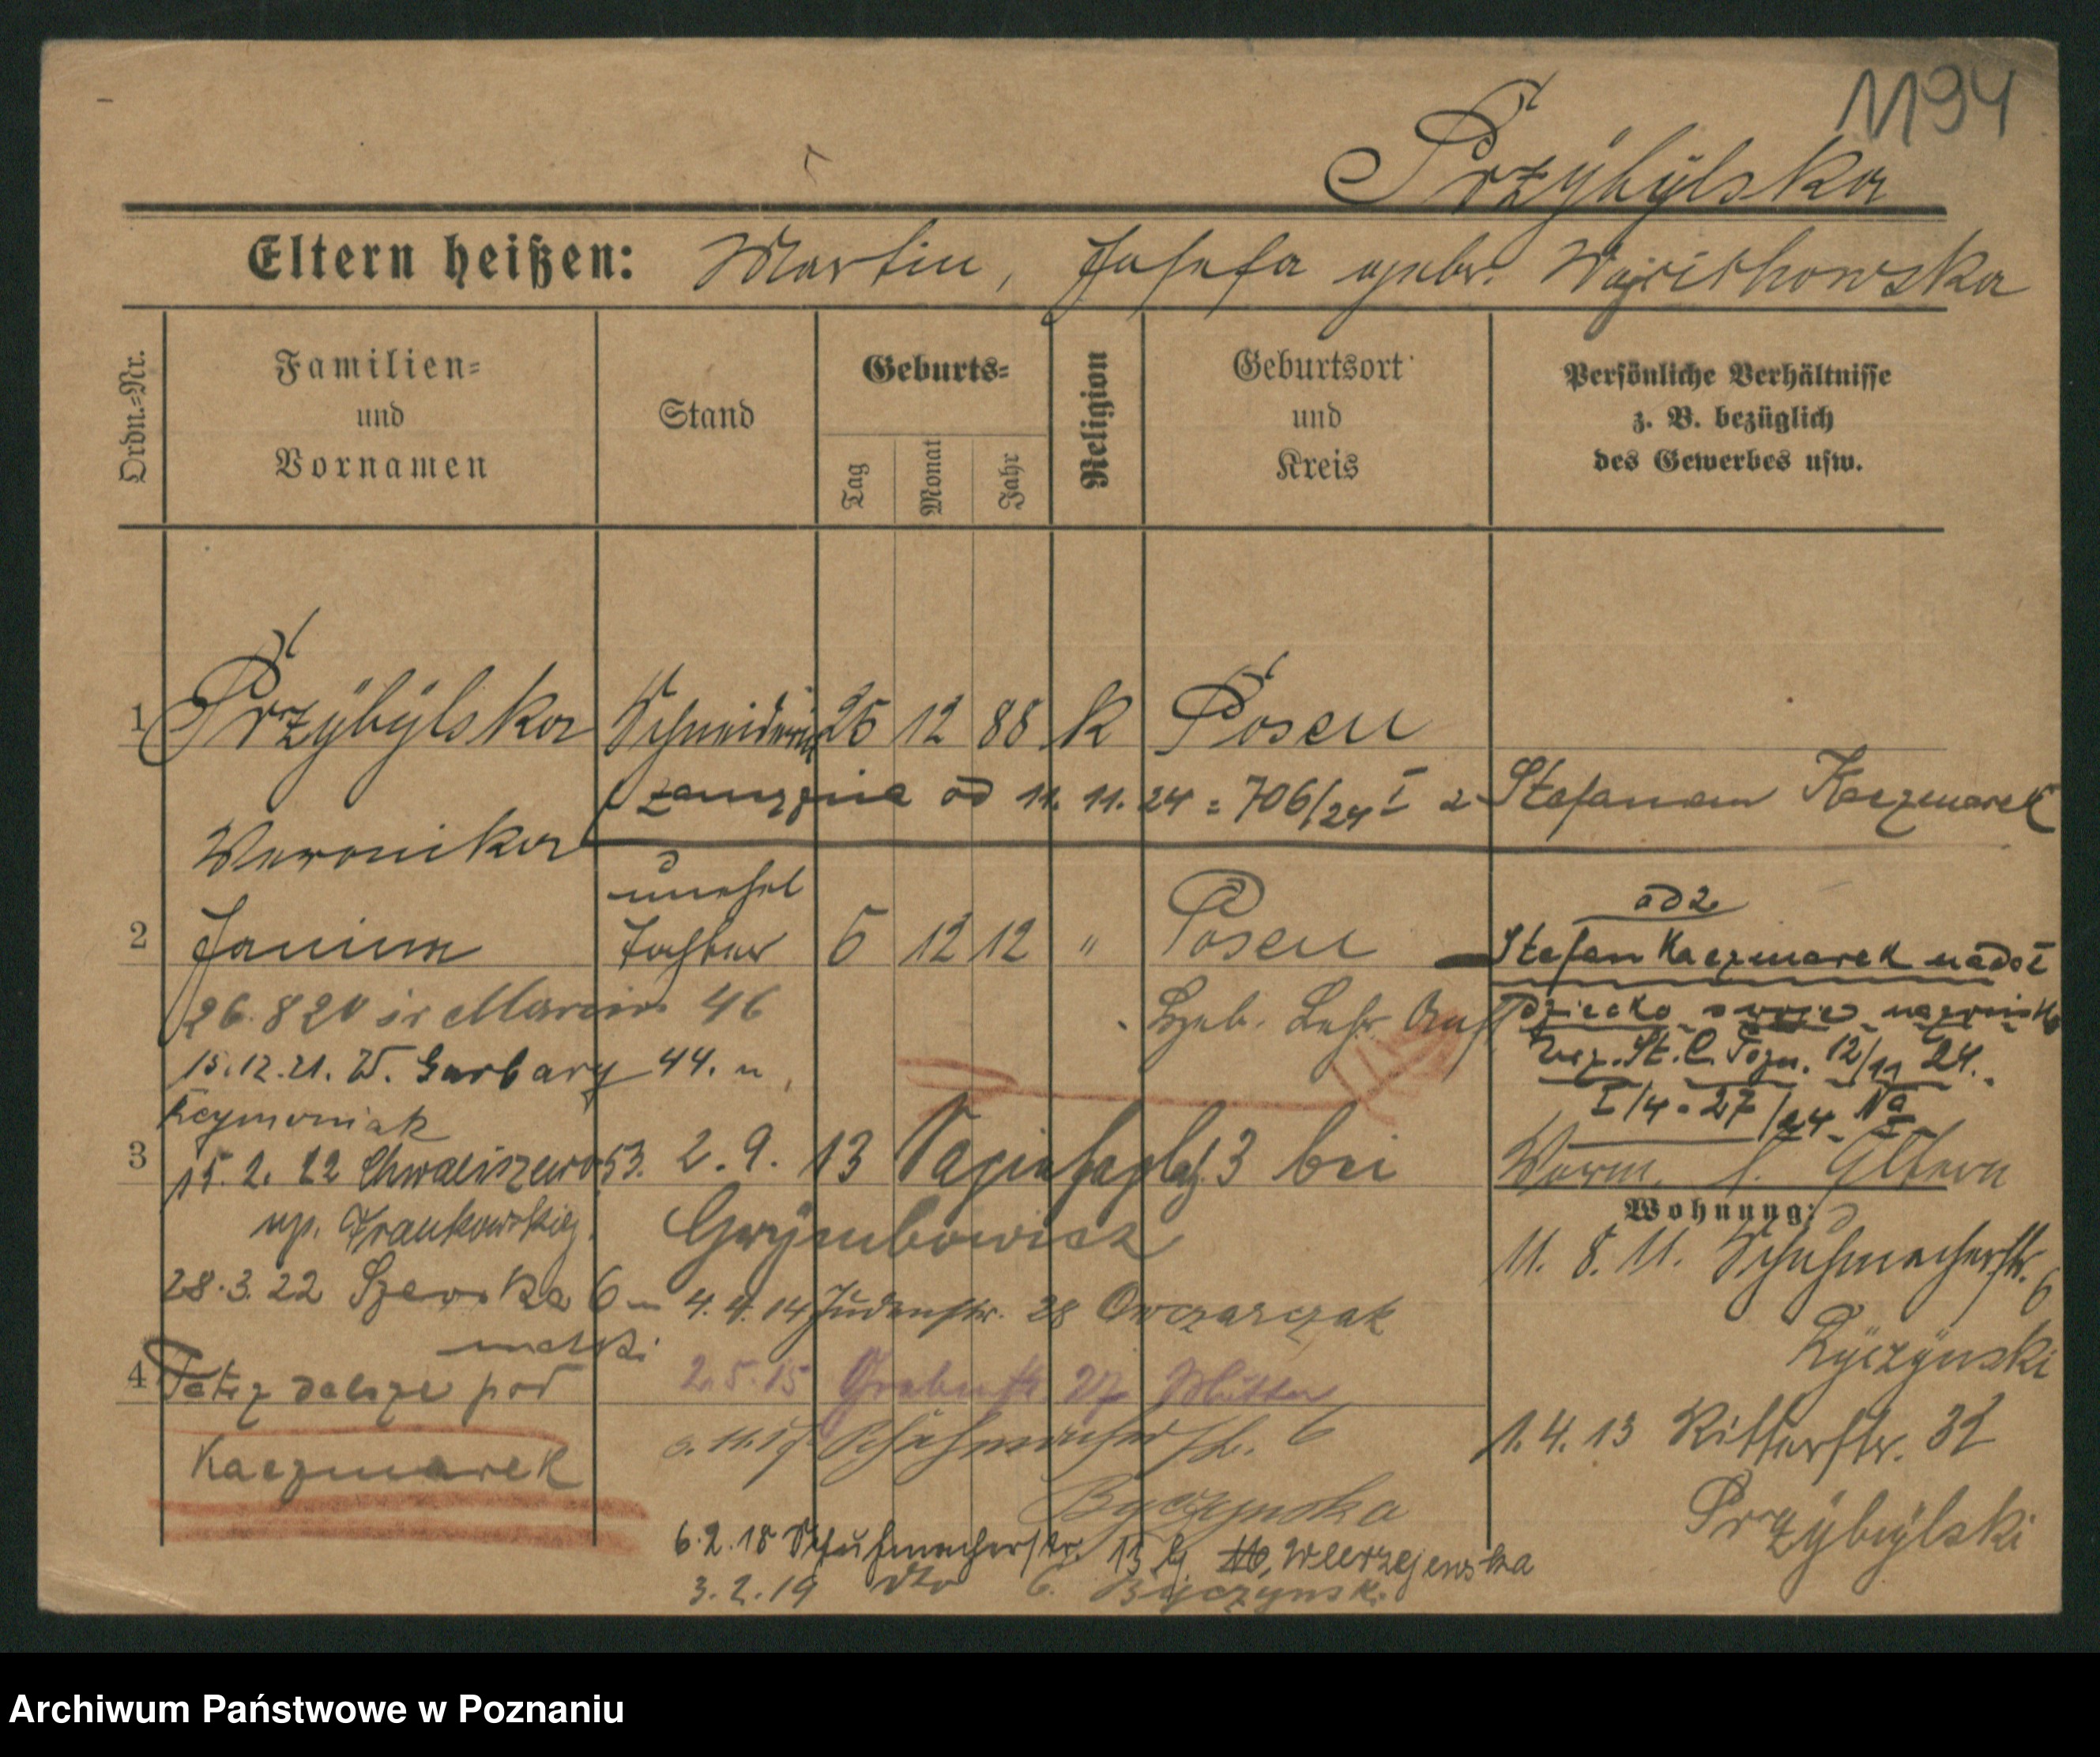 1194
Przÿbÿlska
Eltern heißen: Martin, Josefa gebr.
Ordn.=Nr.
Familien=
und
Vornamen
Stand
Geburts=
Tag
Monat
Jahr
Religion
Geburtsort
und
Kreis
Persönliche Verhältnisse
z. B. bezüglich
des Gewerbes usw.
1 Przÿbÿlska Schneiderin 25 12 88 K Posen
od 11. 11. 24 = 706/24 I z Stefanem Kaczmarek
Weronika
unehel
2 Janina Tochter 5 12 12 " Posen
ad 2
Stefan Kaczmarek nadał
dziecko swoje nazwisko
12/11 24.
I/4 - 27/24
26.8 20 św Marcin 46
15.12.21. W. Garbary 44. u
Szymoniak
3
15. 2. 22 Chwaliszewo 53.
np. Frankowskiej
2. 9. 13 Sapiehaplatz 3 bei
Grzÿmbowicz
28.3.22 Szewska 6
4. 4. 14 Judenstr. 28 Owczarczak
4
dalsze pod
Kaczmarek
2.5.15 27 Mutter
11.17 Schuhmacherstr. 6
Byczynska
6.2.18 Schuhmacherstr. 13 Wierzejewska
3.2.19 dto 6. Byczynsk.
Eltern
Wohnung:
11. 8. 11. Schuhmacherstr. 6
1. 4. 13 Ritterstr. 32
Przÿbÿlski
Archiwum Państwowe w Poznaniu